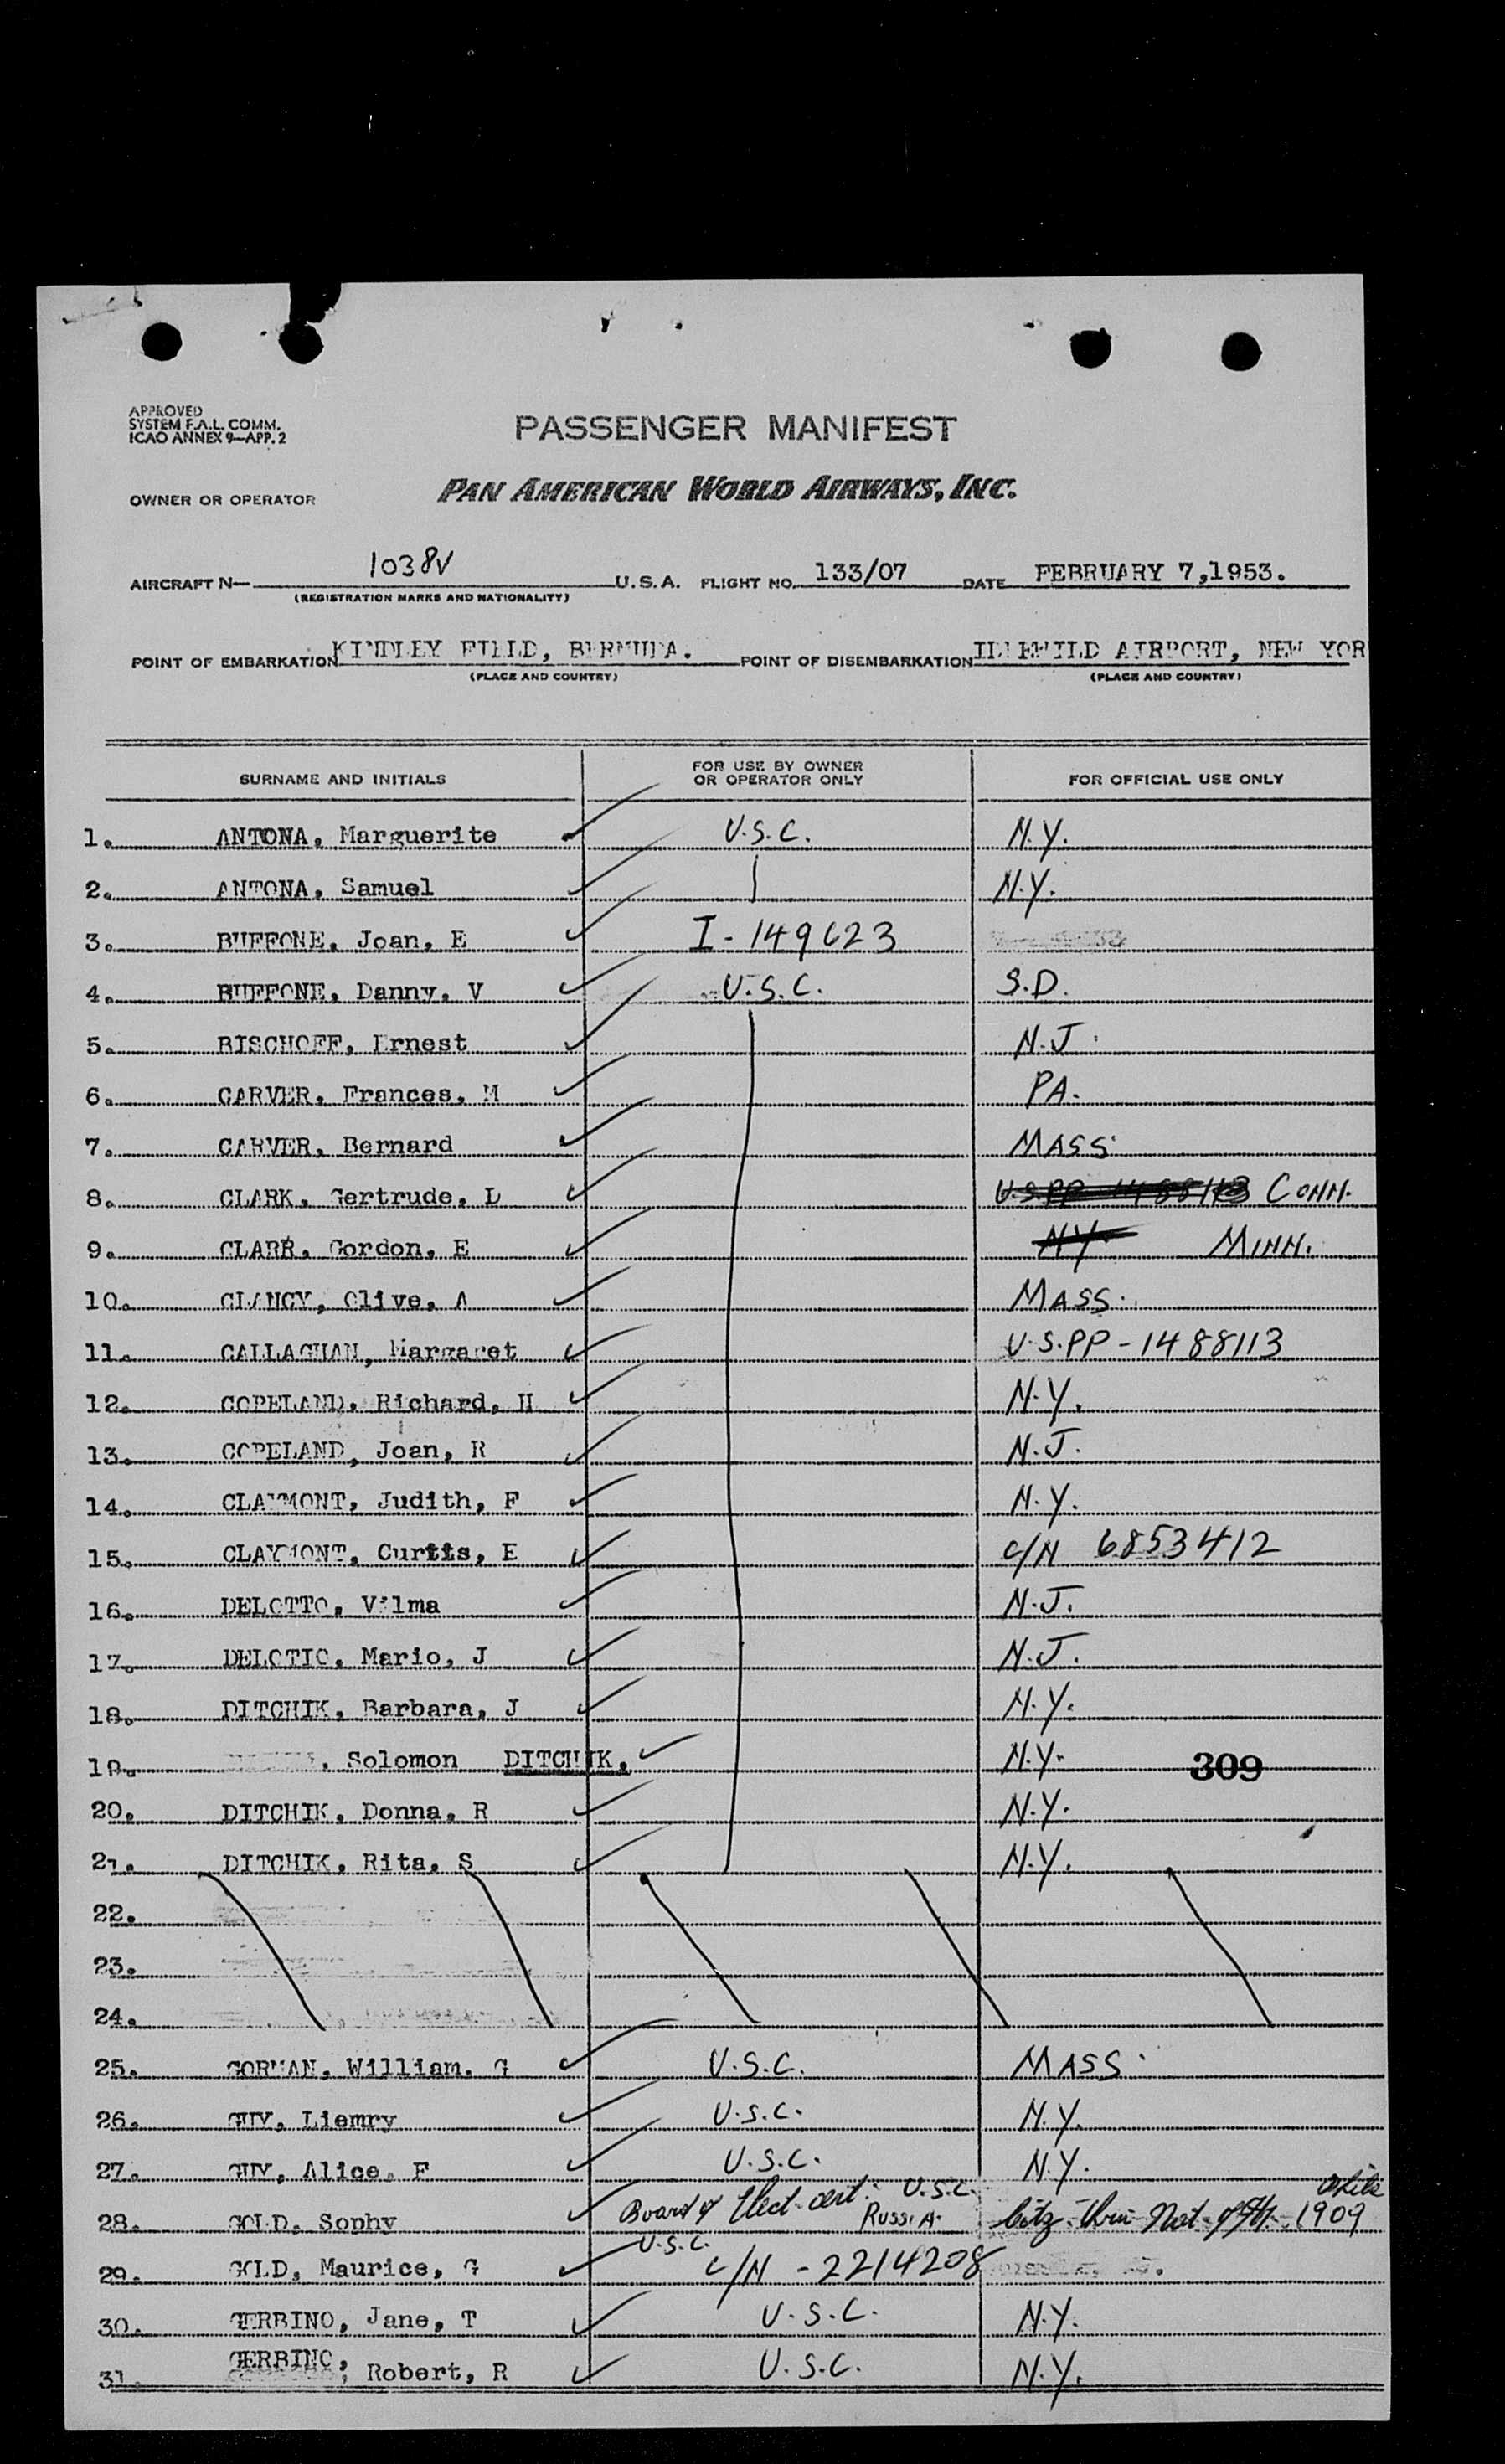 APPROVED
SYSTEM F.A.L. COMM.
ICAO ANNEX 9—APP. 2
PASSENGER MANIFEST
OWNER OR OPERATOR PAN AMERICAN WORLD AIRWAYS, INC.
AIRCRAFT N— 1038V U.S.A. FLIGHT NO. 133/07 DATE FEBRUARY 7,1953.
(REGISTRATION MARKS AND NATIONALITY)
POINT OF EMBARKATION KINDLEY FIELD, BERMUDA. POINT OF DISEMBARKATION IDLEWILD AIRPORT, NEW YOR
(PLACE AND COUNTRY) (PLACE AND COUNTRY)
SURNAME AND INITIALS FOR USE BY OWNER OR OPERATOR ONLY FOR OFFICIAL USE ONLY
1. ANTONA, Marguerite U.S.C. N.Y.
2. ANTONA, Samuel N.Y.
3. BUFFONE, Joan, E I-149623
4. BUFFONE, Danny, V U.S.C. S.D.
5. BISCHOFF, Ernest N.J.
6. CARVER, Frances, M PA.
7. CARVER, Bernard MASS.
8. CLARK, Gertrude, L U.S.PP 1488113 CONN.
9. CLARK, Gordon, E N.Y. MINN.
10. CLANCY, Olive, A MASS.
11. CALLAGHAN, Margaret U.S.PP-1488113
12. COPELAND, Richard, H N.Y.
13. COPELAND, Joan, R N.J.
14. CLAYMONT, Judith, F N.Y.
15. CLAYMONT, Curtis, E C/N 6853412
16. DELOTTO, Vilma N.J.
17. DELOTTO, Mario, J N.J.
18. DITCHIK, Barbara, J N.Y.
19. , Solomon DITCHIK, N.Y. 309
20. DITCHIK, Donna, R N.Y.
21. DITCHIK, Rita, S N.Y.
22.
23.
24.
25. GORMAN, William, G U.S.C. MASS.
26. GUY, Liemry U.S.C. N.Y.
27. GUY, Alice, F U.S.C. N.Y.
28. GOLD, Sophy Board of Elect. cert. U.S.C. RUSSIA. Citz. thru Nat. of 1909
29. GOLD, Maurice, G U.S.C. C/N -2214208
30. GERBINO, Jane, T U.S.C. N.Y.
31. GERBINO, Robert, R U.S.C. N.Y.